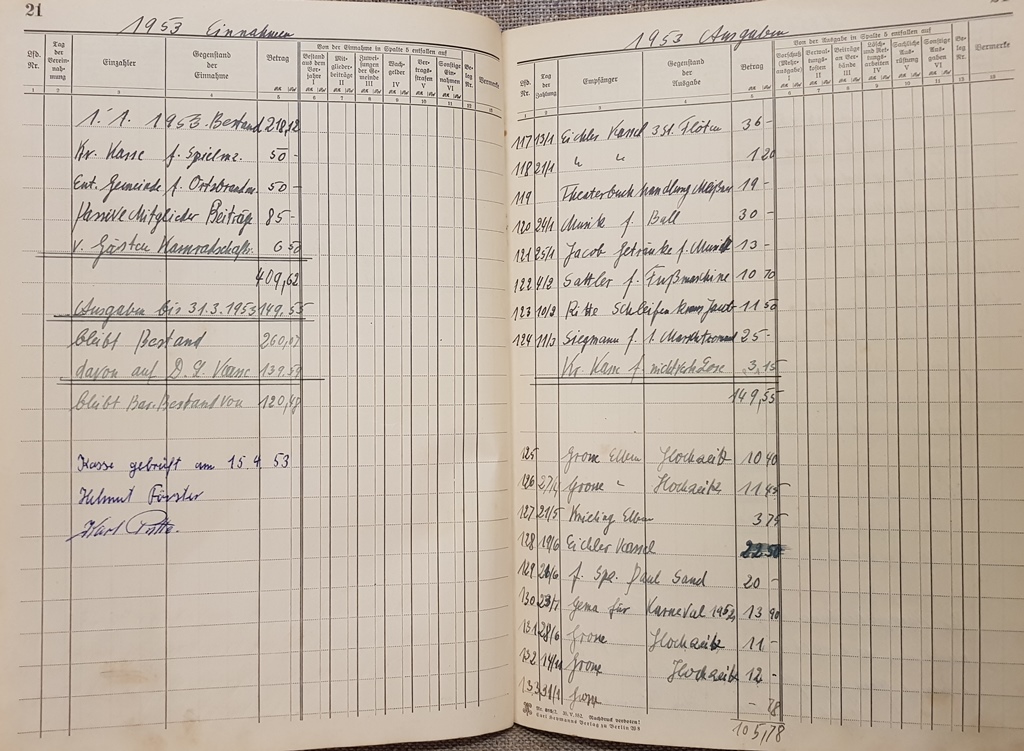 21
1953 Einnahmen
Lfd. Nr.
Tag der Vereinnahmung
Einzahler
Gegenstand der Einnahme
Betrag
Von der Einnahme in Spalte 5 entfallen auf
Bestand aus dem Vorjahre I
Mitgliederbeiträge II
Zuweisungen der Gemeinde III
Wachgelder IV
Vertragsstrafen V
Sonstige Einnahmen VI
Beleg Nr.
Vermerke
1 2 3 4 5 6 7 8 9 10 11 12 13
1. 1. 1953. Bestand 218,12
Kr. Kasse f. Spielmz. 50 -
Ent. Gemeinde f. Ortsbrandm. 50 -
Passive Mitglieder Beiträge 85 -
v. Gästen Kamradschafts. 6 50
409,62
Ausgaben bis 31.3.1953 149,55
bleibt Bestand 260,07
davon auf D. G. Kasse 139,59
bleibt Bar. Bestand von 120,48
Kasse geprüft am 15 4 53
Helmut Förster
Karl
1953 Ausgaben
Lfd. Nr.
Tag der Zahlung
Empfänger
Gegenstand der Ausgabe
Betrag
Von der Ausgabe in Spalte 5 entfallen auf
Vorschuß (Mehrausgabe) I
Verwaltungskosten II
Beiträge an Verbände III
Lösch- und Rettungsarbeiten IV
Sachliche Ausrüstung V
Sonstige Ausgaben VI
Beleg Nr.
Vermerke
1 2 3 4 5 6 7 8 9 10 11 12 13
117 13/1 Eichler Kassel 3 St. Flöten 36 -
118 21/1 " " 1 20
119 Theaterbuchhandlung Meißner 19 -
120 24/1 Musik f. Ball 30 -
121 25/1 Jacob Getränke f. Musik 13 -
122 4/2 Sattler f. Fußmaschine 10 70
123 10/2 Ritte Schleifen Jacob 11 50
124 11/3 Siegmann f. 1. 25 -
Kr. Kasse f. nicht verk. Lose 3,15
149,55
125 Grone Elben Hochzeit 10 40
126 27/ Grone " Hochzeit 11 45
127 21/5 Knieling Elben 3 75
128 19/6 Eichler Kassel 22 50
129 20/6 f. Spz. Paul Sand 20 -
130 23/ Gema für Karneval 13 90
131 28/6 Grone Hochzeit 11 -
132 14/ Grone Hochzeit 12 -
133 31/ Grone - 78
105,78
Nachdruck verboten!
Carl Heymanns Verlag zu Berlin W 8